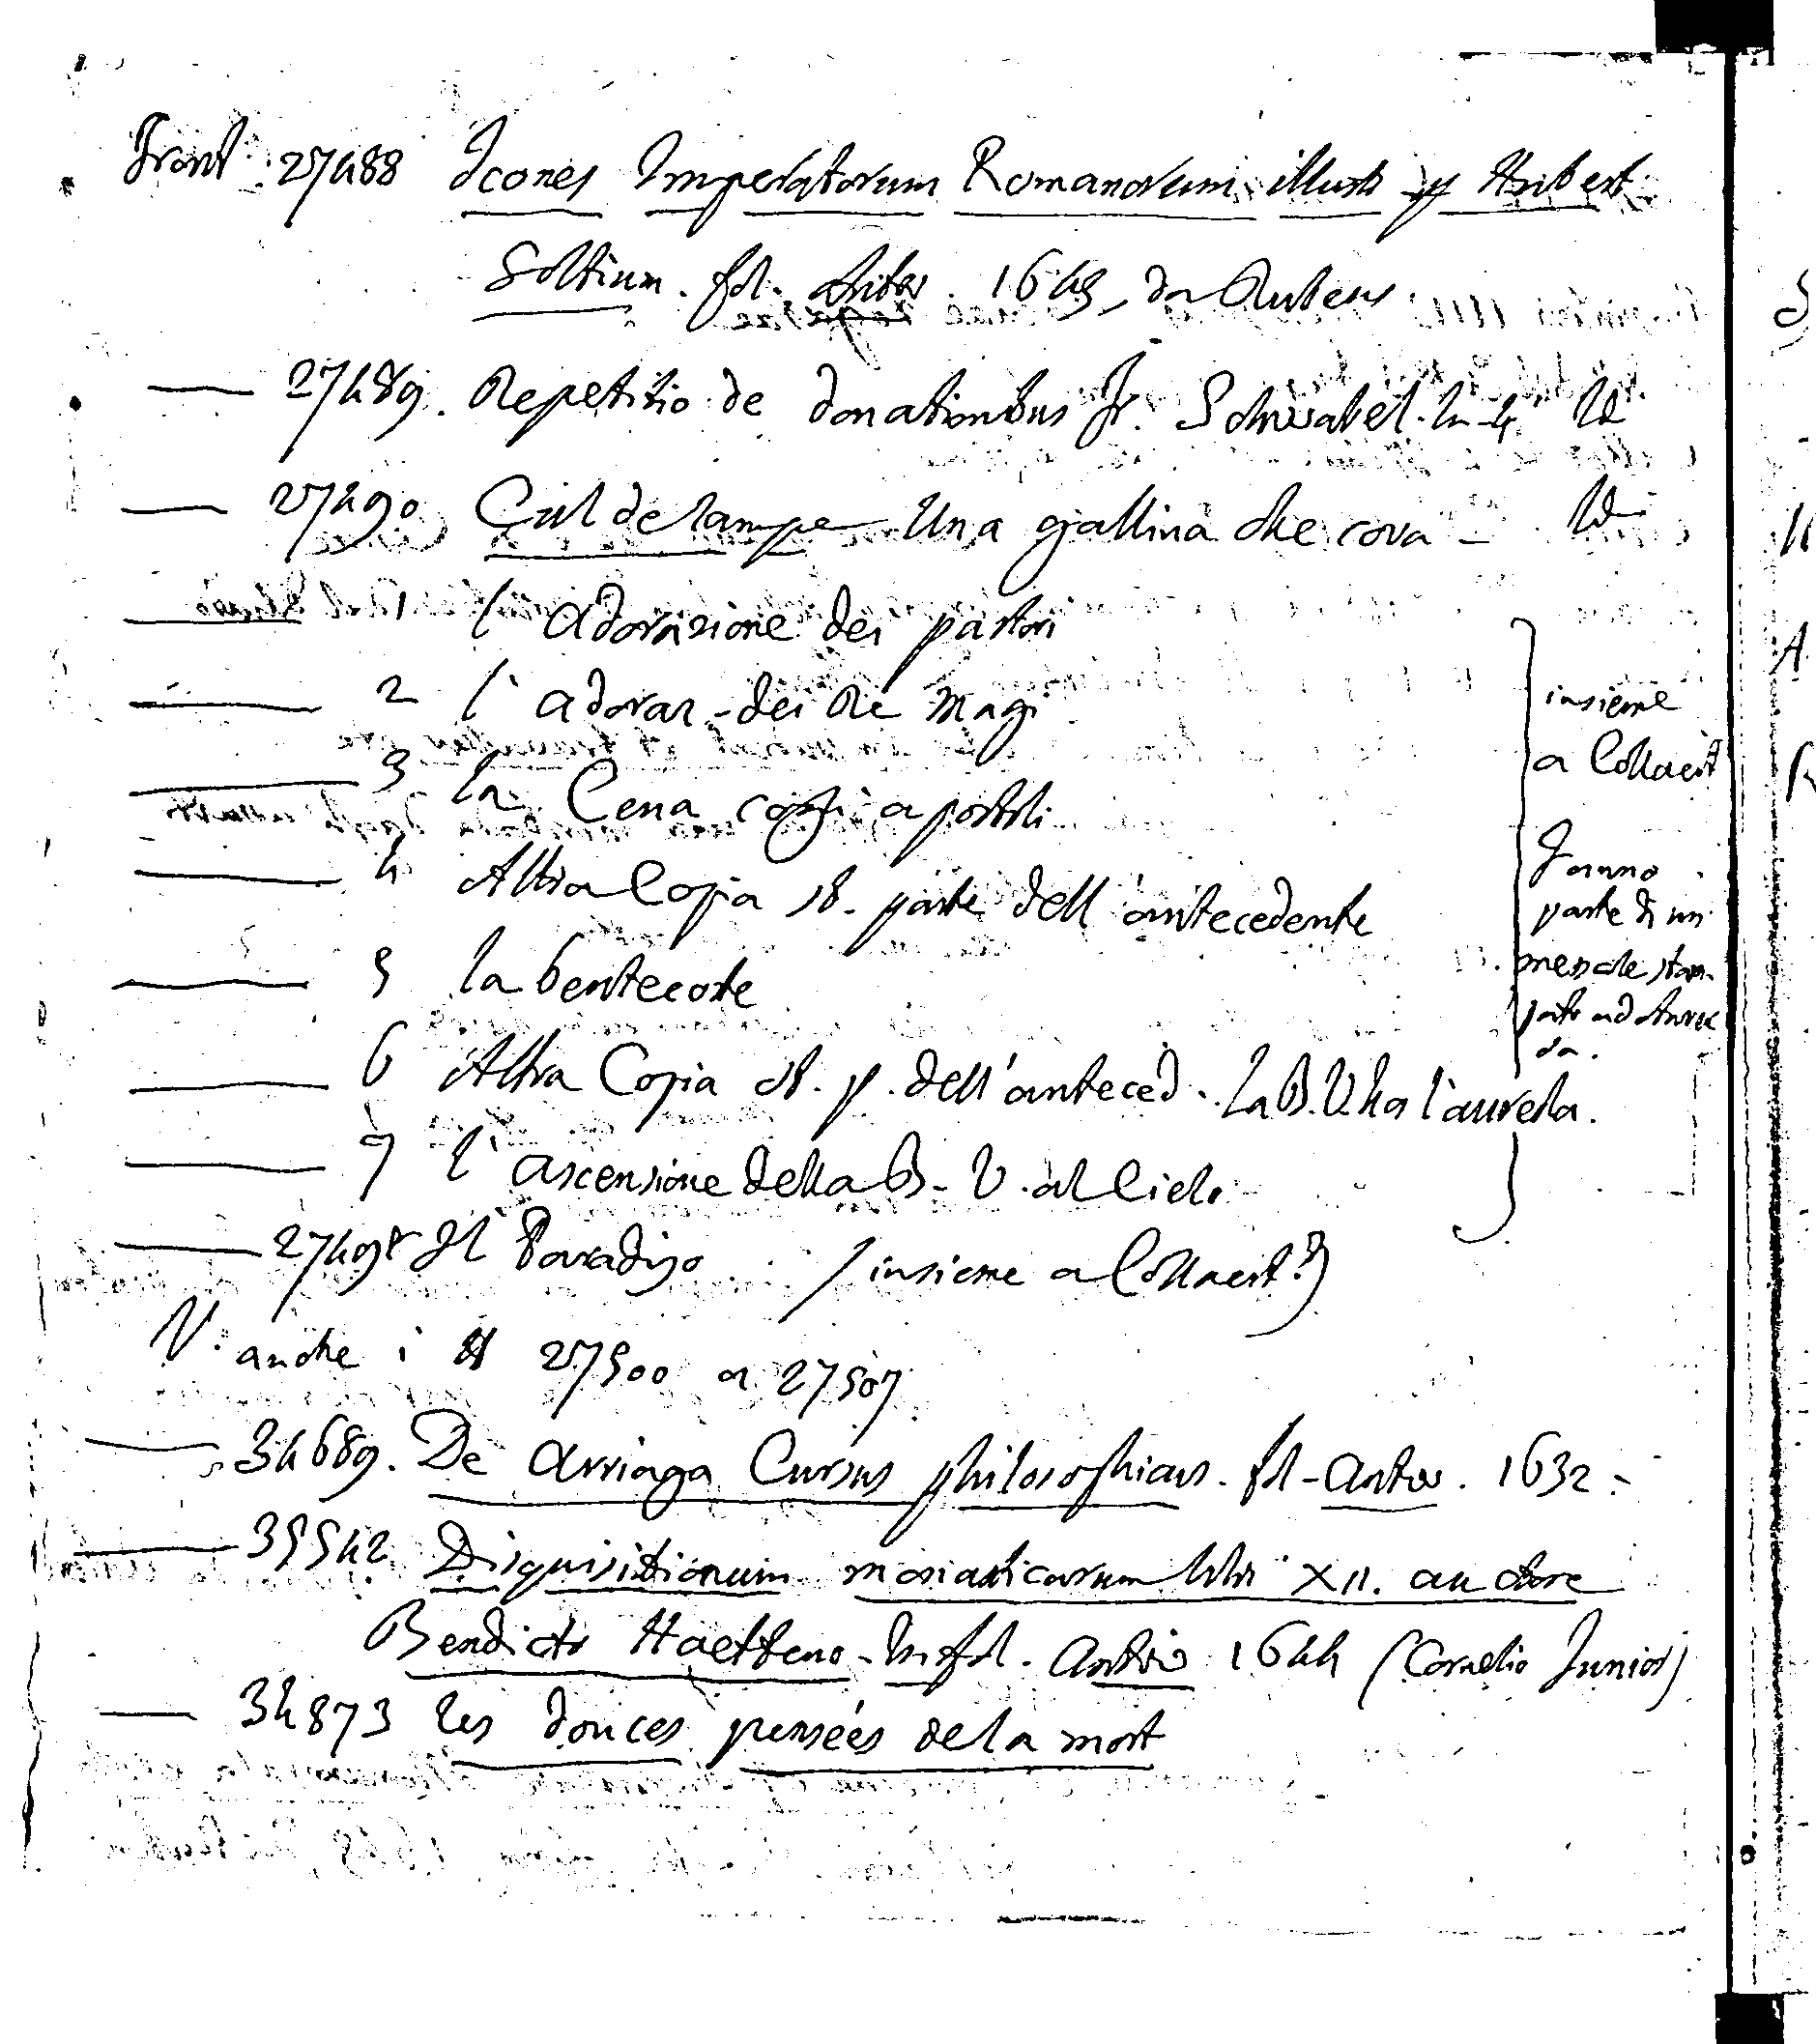 Front. 27488 Icones Imperatorum Romanorum illustr p Hubert
Goltium. fol. Antw. 1645, da Rubens
27489. Repetitio de donationibus Fr. Schwabel. In-4° Id
27490 Cul de lampe Una gallina che cova - Id
1 l'adorazione dei pastori
2 l'adoraz. dei Re Magi
3 la Cena cogli apostoli
4 Altra Copia id. parte dell'antecedente
5 la Pentecoste
6 Altra Copia id. p. dell'anteced. La B. V. ha l'aureola.
7 l'ascensione della B. V. al Cielo
insieme
a Collaert
Fanno
parte di un
messale stam-
pato ad Anver
sa.
27498 Il Paradiso (insieme a Collaert?)
V. anche i N 27500 a 27507
34689. De Arriaga Cursus philosophicus. fol-Antw. 1632.
35542 Disquisitionum monasticarum libri XII. auctore
Bendicto Haefteno - In fol. Antw 1644 (Cornelio Junior)
34873 les douces pensées de la mort